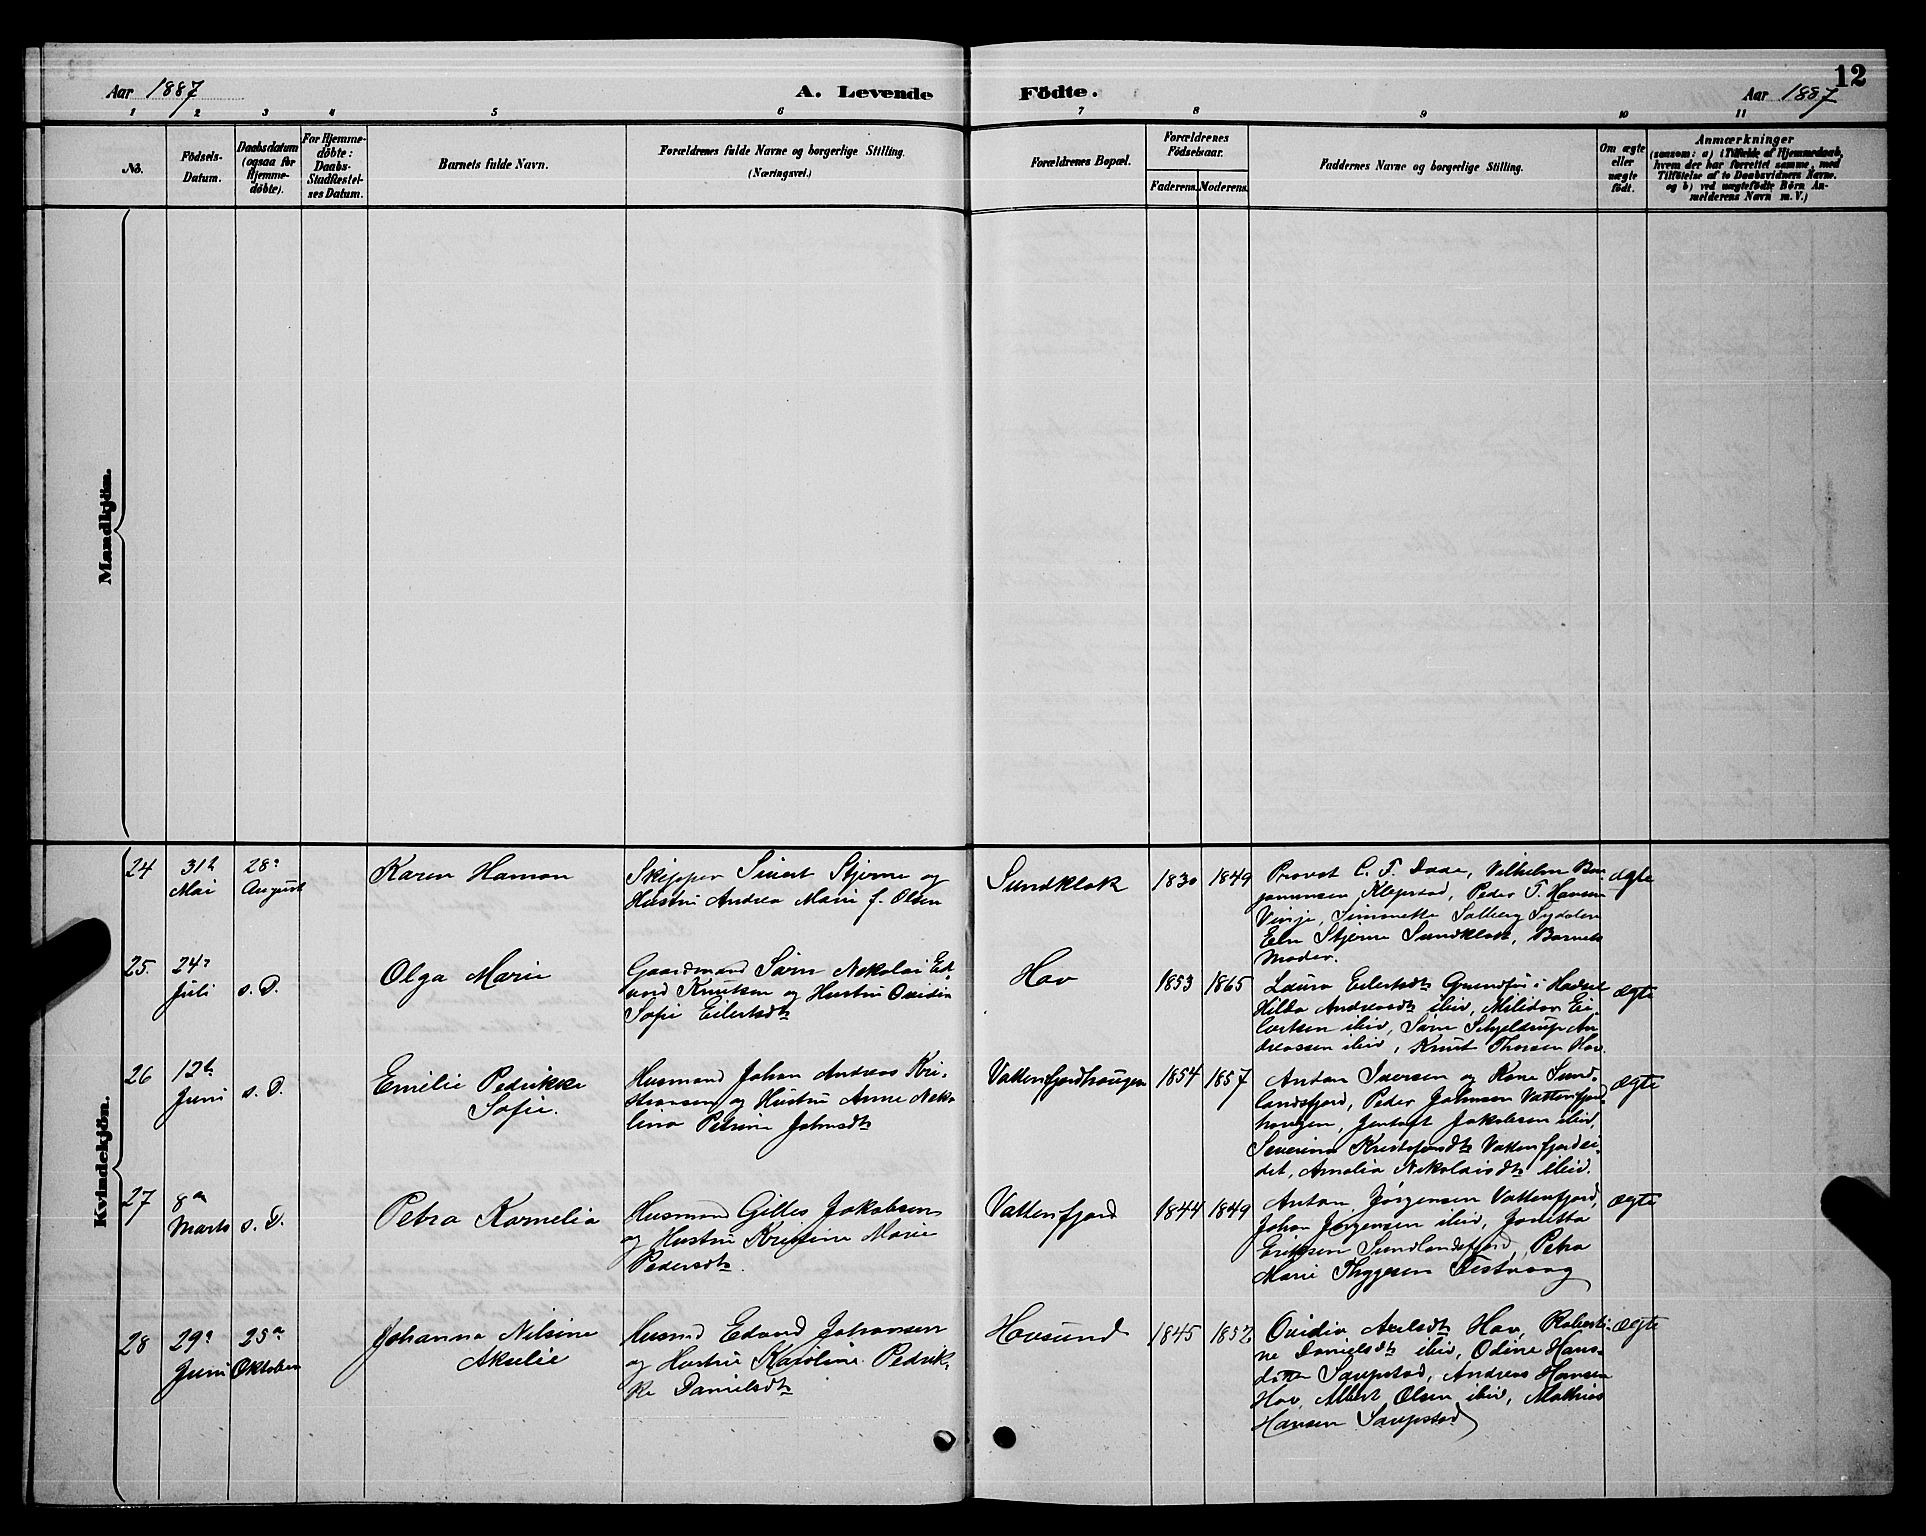 12
Aar 1887
A. Levende Födte.
Aar 1887
1 2 3 4 5 6 7 8 9 10 11
No.
Födsels-Datum.
Daabsdatum (ogsaa for Hjemme-döbte).
For Hjemme-döbte: Daabs-Stadfestel-ses Datum.
Barnets fulde Navn.
Forældrenes fulde Navne og borgerlige Stilling.
(Næringsvei.)
Forældrenes Bopæl.
Forældrenes Födselsaar.
Faderens. Moderens.
Faddernes Navne og borgerlige Stilling.
Om ægte eller uægte födt.
Anmærkninger
(saasom: a) i Tilfælde af Hjemmedaab, hvem der har forrettet samme, med Tilföielse af to Daabsvidners Navne. og b) ved uægtefödte Börn An-melderens Navn m. V.)
Mandkjön.
Kvindekjön.
24
31te Mai
28de August
Karen Hamon
Skipper Sivert Stjerne og
Hustru Andrea Marie f. Olsen
Sundklak
1830 1849
Provst C. F. Dade, Vilhelm Ben
jaminsen Klepstad, Peder T. Hansen
Vinje, Simonette Solberg Sydalen
Eln Stjerne Sundklak, Barnets
Moder.
ægte
25.
24de Juli
s. D.
Olga Marie
Gaardmand Sørn Nekolai Ed
vard Knutsen og Hustru Ovidia
Sofie Eilertsdtr
Hov
1853 1865
Laura Eilertsdtr Grundfør i Hadsel
Hilda Andreasdtr ibid, Melidor Ei
lertsen ibid, Sørn Schjeldrup An
dreassen ibid, Knut Thorsen Hov.
ægte
26
12te Juni
s. D.
Emilie Pedrikke
Sofie.
Husmand Johan Andreas Kri-
stiansen og Hustru Anne Neko
lina Petrine Johnsdtr
Vattenfjordhaugen
1854 1857
Anton Iversen og Kone Sund-
landsfjord, Peder Johnsen Vattenfjord
haugen, Jentoft Jakobsen ibid,
Severina Kristofersdtr Vattenfjordei-
det, Amalia Nekolaisdtr ibid.
ægte
27
8de Marts
s. D.
Petra Kornelia
Husmand Gilles Jakobsen
og Hustru Kristine Marie
Pedersdtr.
Vattenfjord
1844 1849
Anton Jørgensen Vattenfjord,
Johan Jørgensen ibid, Jorletta
Eriksen Sundlandsfjord, Petra
Marie Thygesen Festvaag
ægte
28
29de Juni
25de Oktober
Johanna Nilsine
Akselie
Husmd Edvard Johansen
og Hustru Karoline Pedrik-
ke Danielsdtr
Hovsund
1845 1852
Ovidia Axelsdtr Hov, Roberti-
ne Danielsdtr ibid, Odine Hans-
datter Saupstad, Andreas Hansen
Hov, Albert Olsen ibid, Mathias
Hansen Saupstad
ægte